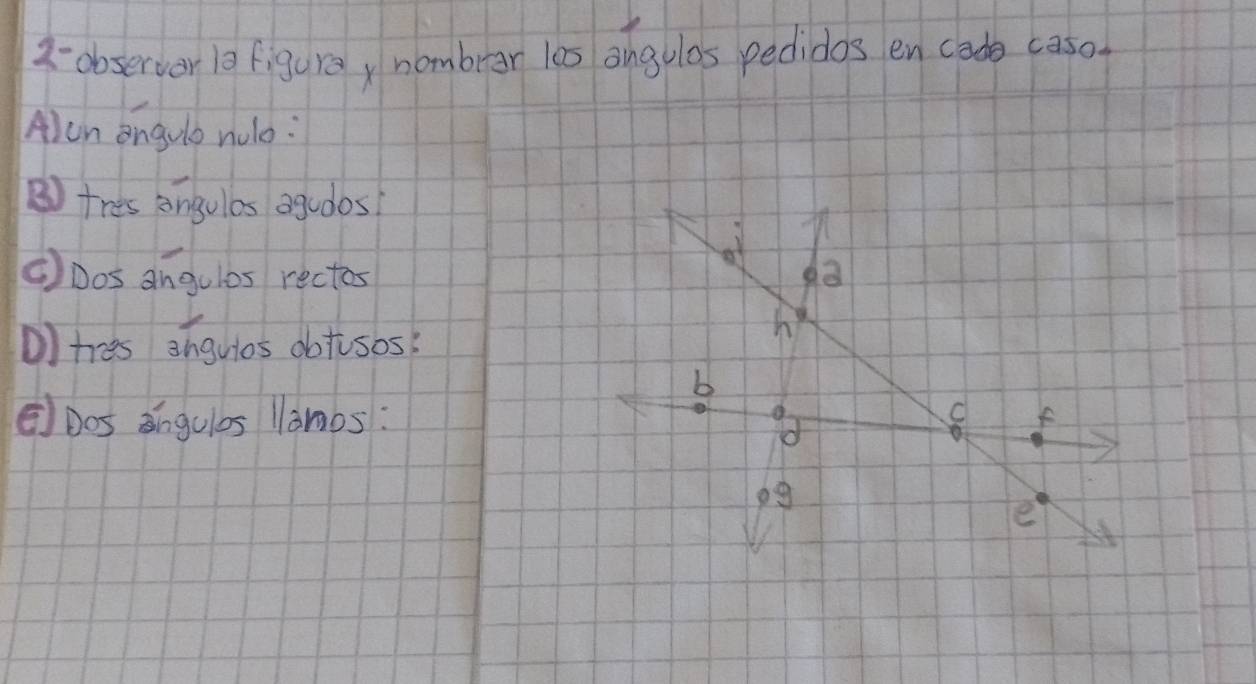 2- observar la figura y nombrar los ángulos pedidos en cada caso.
A) un ángulo nulo:
B) tres ángulos agudos:
C) Dos ángulos rectos
D) tres ángulos obtusos:
E) Dos ángulos llanos:
j
a
h
b
c
f
d
g
e